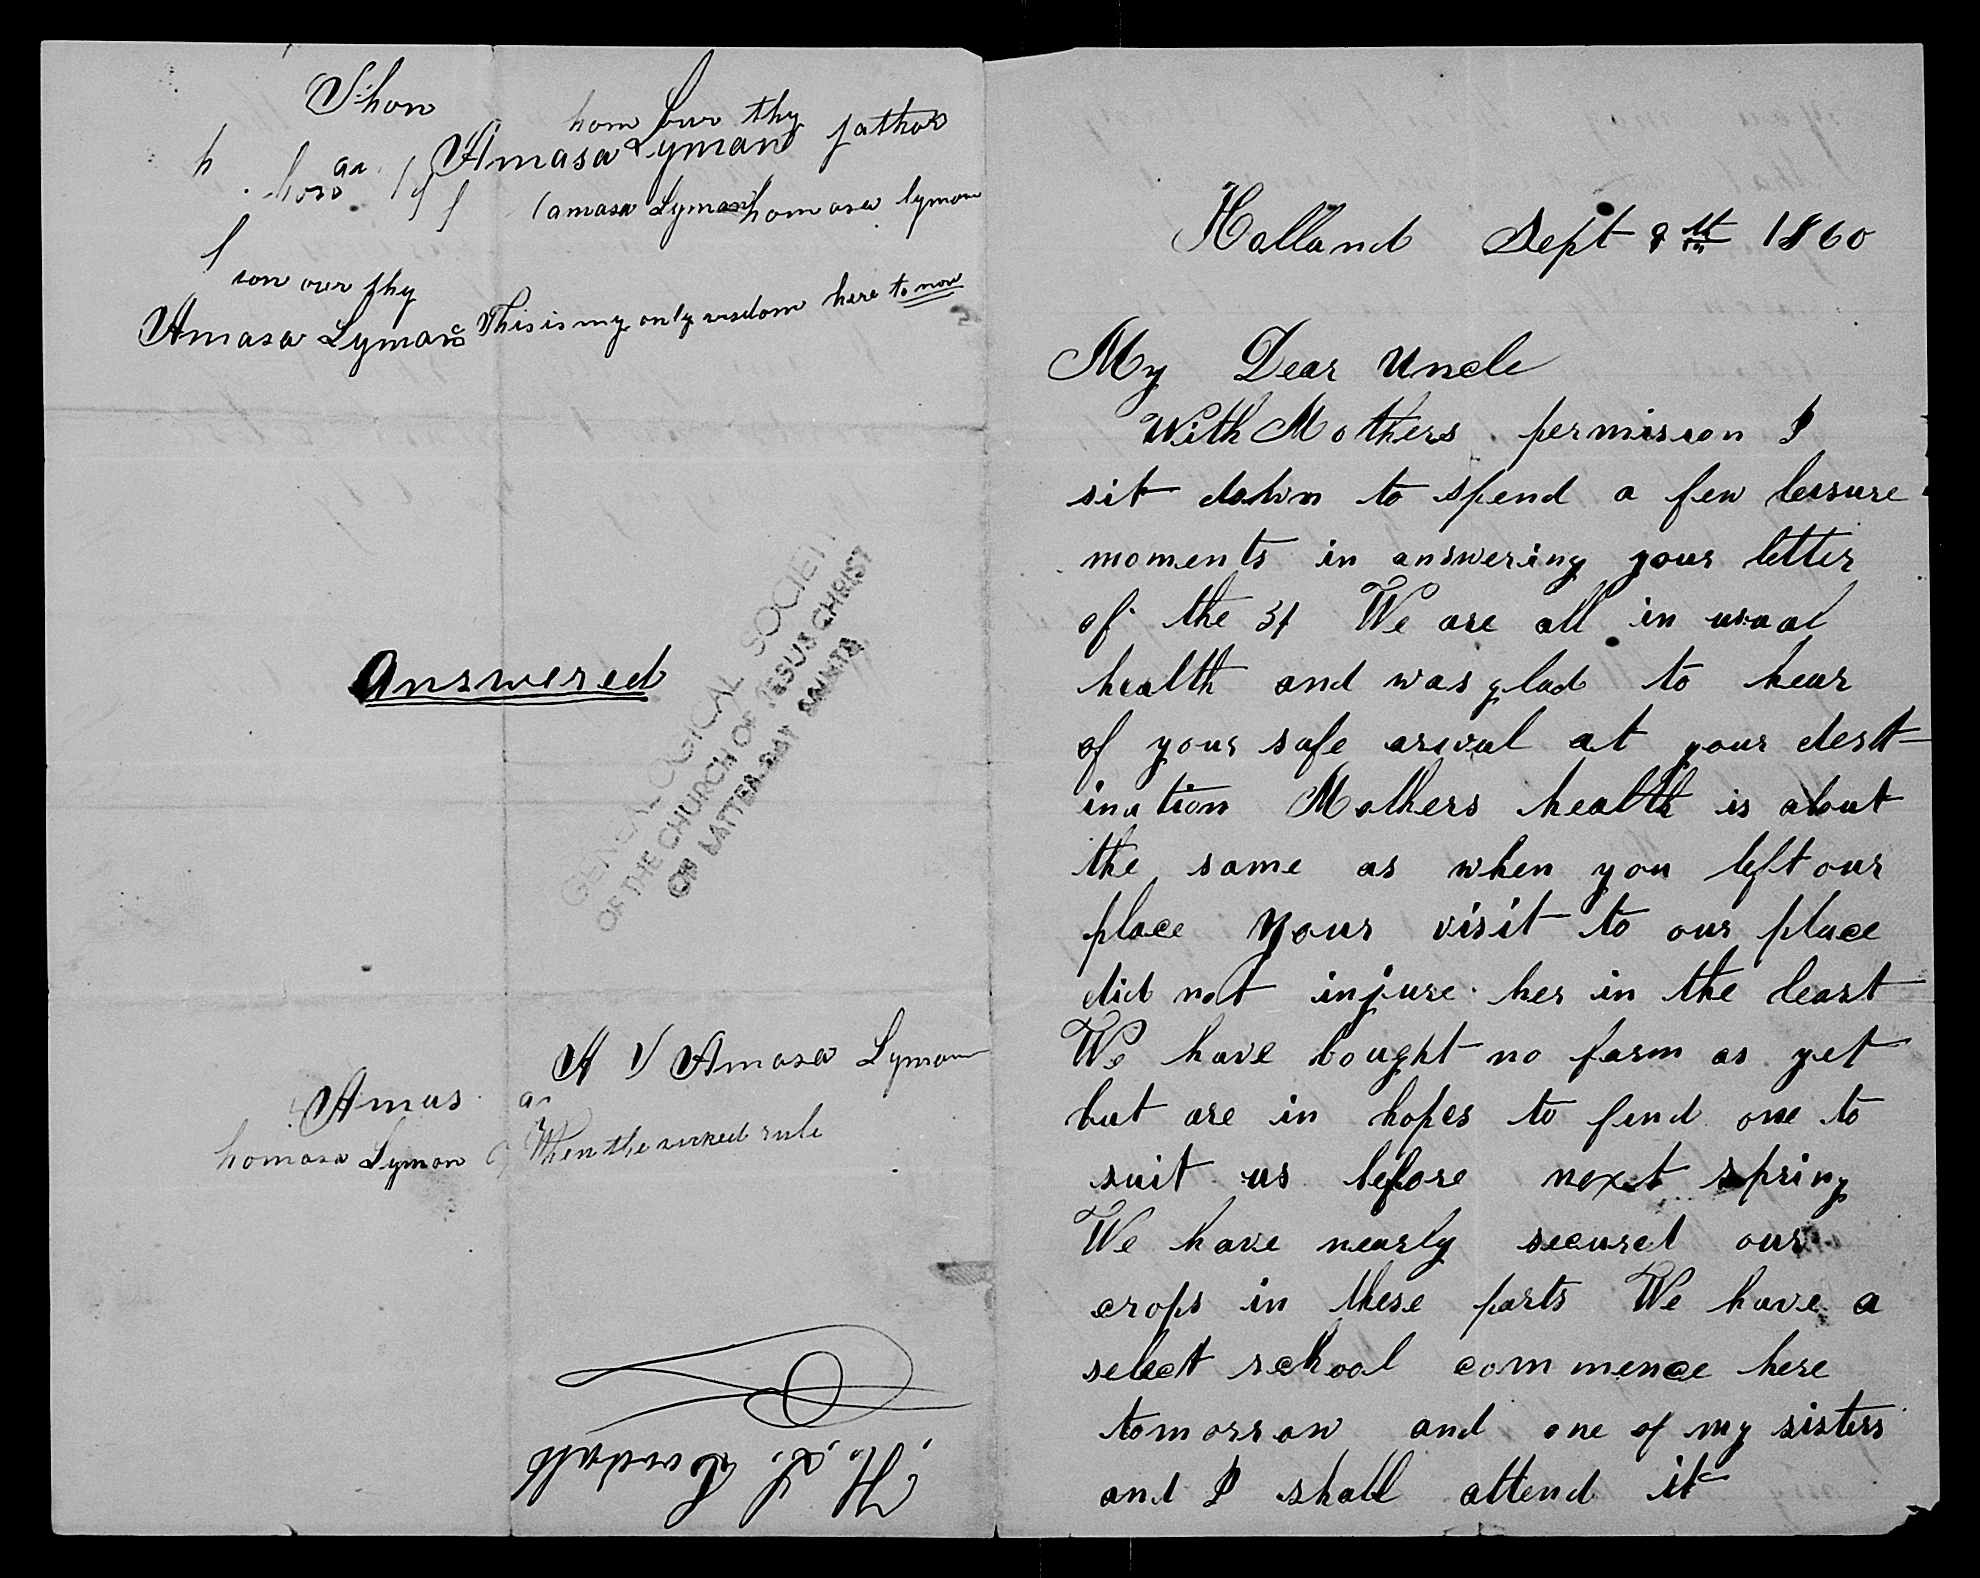 Shon
hom our thy
h
Amasa Lyman father
an
hosa
(amasa Lyman homasa lyman
son our thy
Amasa Lyman This is my only wisdom here to now
Answered
GENEALOGICAL SOCIETY
OF THE CHURCH OF JESUS CHRIST
OF LATTER-DAY SAINTS
A Amasa Lyman
Amus an
homasa Lyman When the wicked rule
Holland Sept 8th 1860
My Dear Uncle
With Mothers permission I
sit down to spend a few lessure
moments in answering your letter
of the 31 We are all in usual
health and was glad to hear
of your safe arival at your dest-
ination Mothers health is about
the same as when you left our
place Your visit to our place
did not injure her in the least
We have bought no farm as yet
but are in hopes to find one to
suit us before next spring
We have nearly secured our
crops in these parts We have a
select school commence here
tomorrow and one of my sisters
and I shall attend it